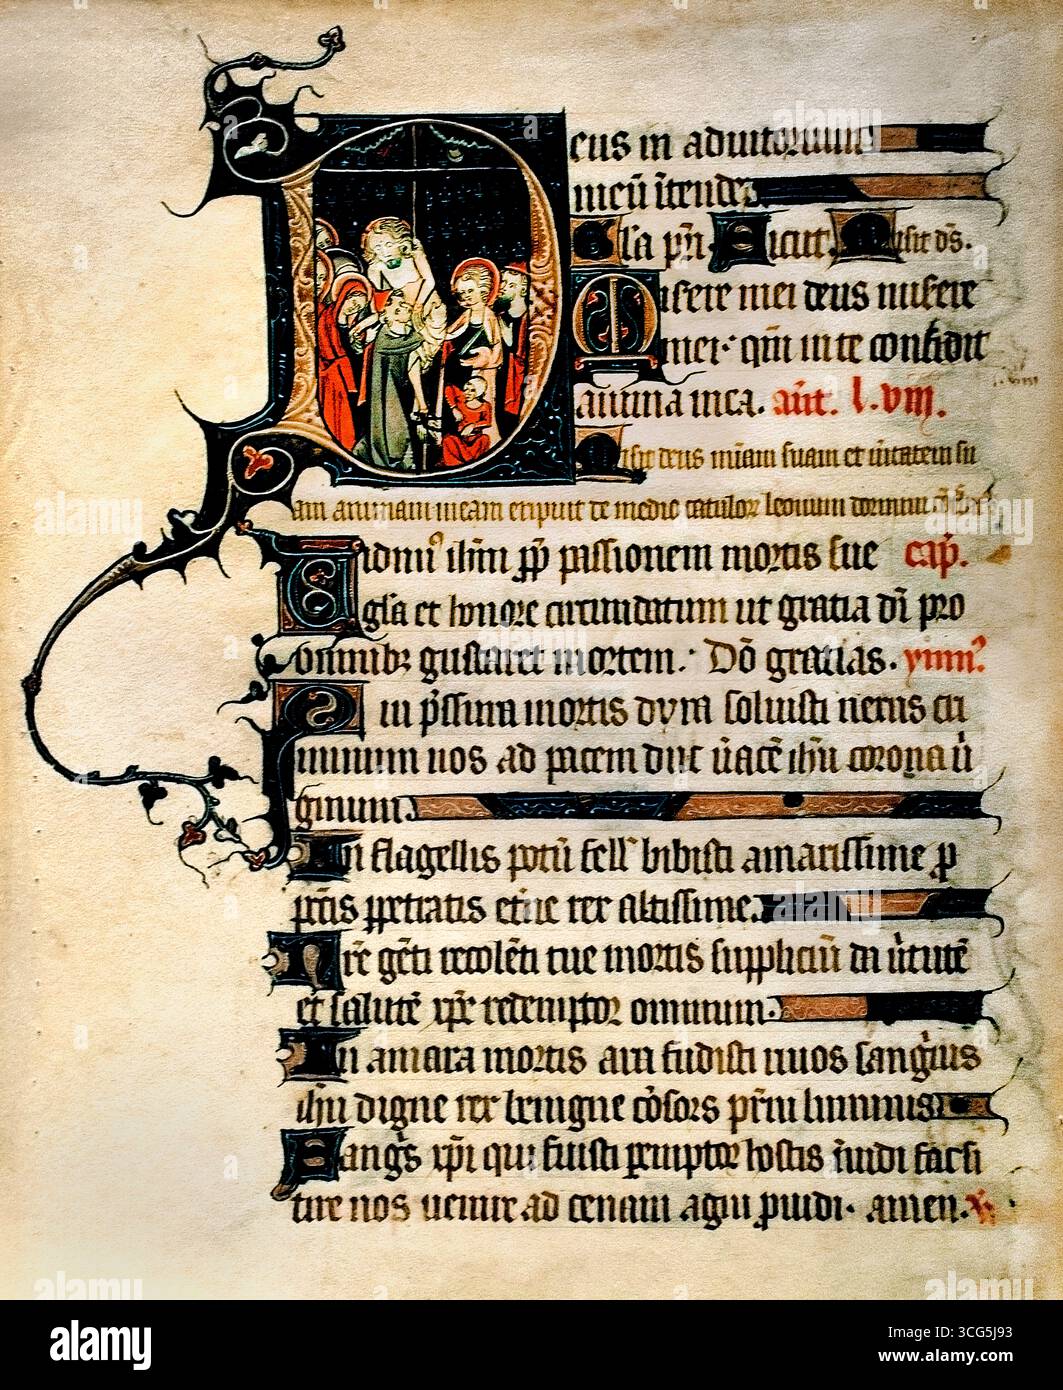 Deus in adiutorium
meū ītende
Gl̄a pr̄i. Sicut. Misit ds̄.
Misere mei deus misere
mei. qm̄ in te confidit
anima mea. añt. l. viii.
Misit deus mīam suam et ūitatem su
am animam meam eripuit de medio catulor leonum dormiui
Uidimꝰ ih̄m ꝓp̄ passionem mortis sue cap̄.
gl̄a et honore circundatum ut gratia dī pro
omnibꝫ gustaret mortem. Dō gratias. ymnꝰ.
Qui p̄ssura mortis dura soluisti nexus cri
minum nos ad pacem duc ūacē ih̄u corona ūi
ginum.
In flagellis potū fell bibisti amarissime ꝓ
ꝑetratis rex altissime.
tue mortis suppliciū da ūtutē
et salutē xp̄e redemptor omnium.
In amara mortis ara fudisti riuos sang̃uis
ih̄u digne rex benigne cōsors pr̄ni luminis
Sangs̄ xp̄i qui fuisti ꝑemptor hostis īuidi fac si
tire nos uenire ad cenam agni ꝓuidi. amen.
alamy
Image ID: 3CG5J93
www.alamy.com